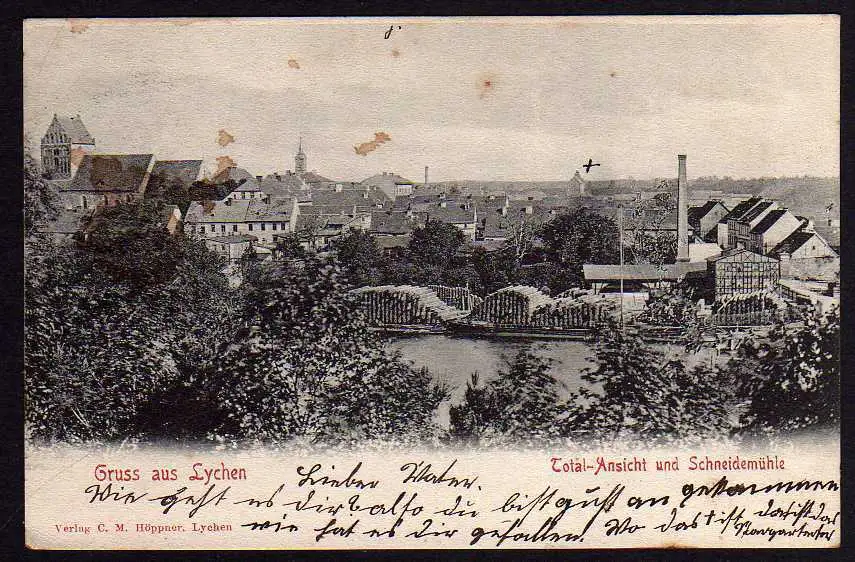 Gruss aus Lychen
Total-Ansicht und Schneidemühle
Lieber Water.
Wie geht es dir? also du bist gut angekommen
wie hat es dir gefallen. Wo das ist, da ist das
Verlag C. M. Höppner, Lychen